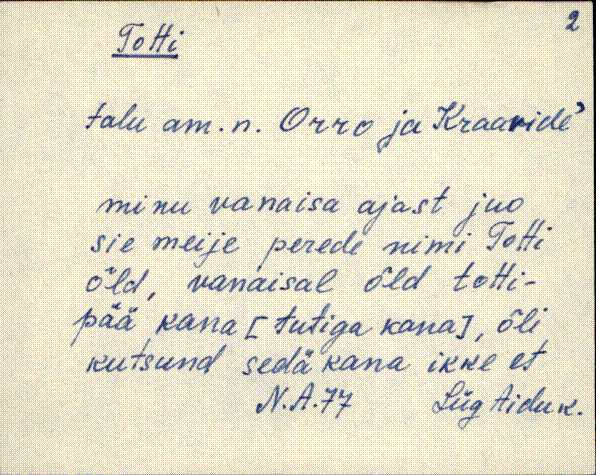 2
Totti
talu am. n. Orro ja Kraavide'
minu vanaisa ajast juo
sie meije perede nimi Totti
õld, vanaisal õld totti-
pää kana [tutiga kana], õli
kutsund sedä kana ikke et
N.A.77 Lüg Aidu k.